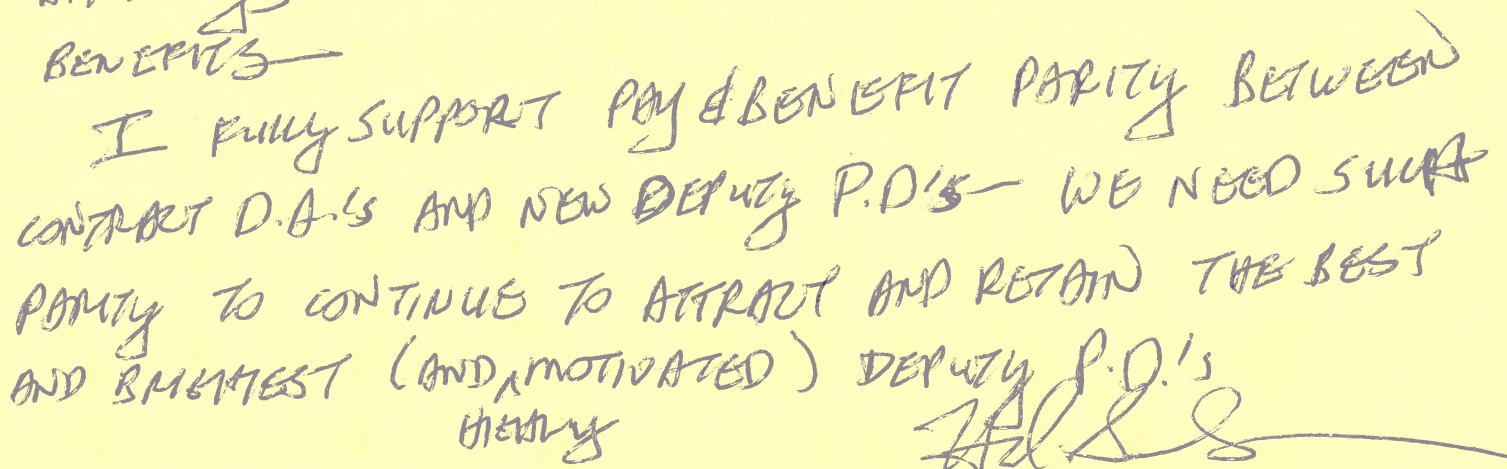 BENEFITS—
I FULLY SUPPORT PAY & BENEFIT PARITY BETWEEN
CONTRACT D.A.'S AND NEW DEPUTY P.D'S — WE NEED SUCH
PARITY TO CONTINUE TO ATTRACT AND RETAIN THE BEST
AND BRIGHTEST (AND ^ MOTIVATED) DEPUTY P.D.'S
HIGHLY